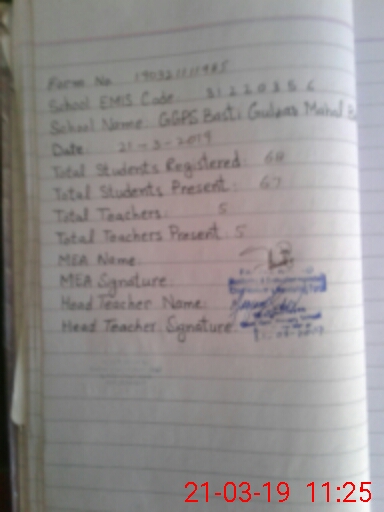 Form No.
School EMIS Code: 31220356
School Name: GGPS Basti Gulzar Mahal B
Date: 21-3-2019
Total Students Registered: 68
Total Students Present: 67
Total Teachers: 5
Total Teachers Present: 5
MEA Name:
MEA Signature:
Head Teacher Name:
Head Teacher Signature
21-03-19 11:25